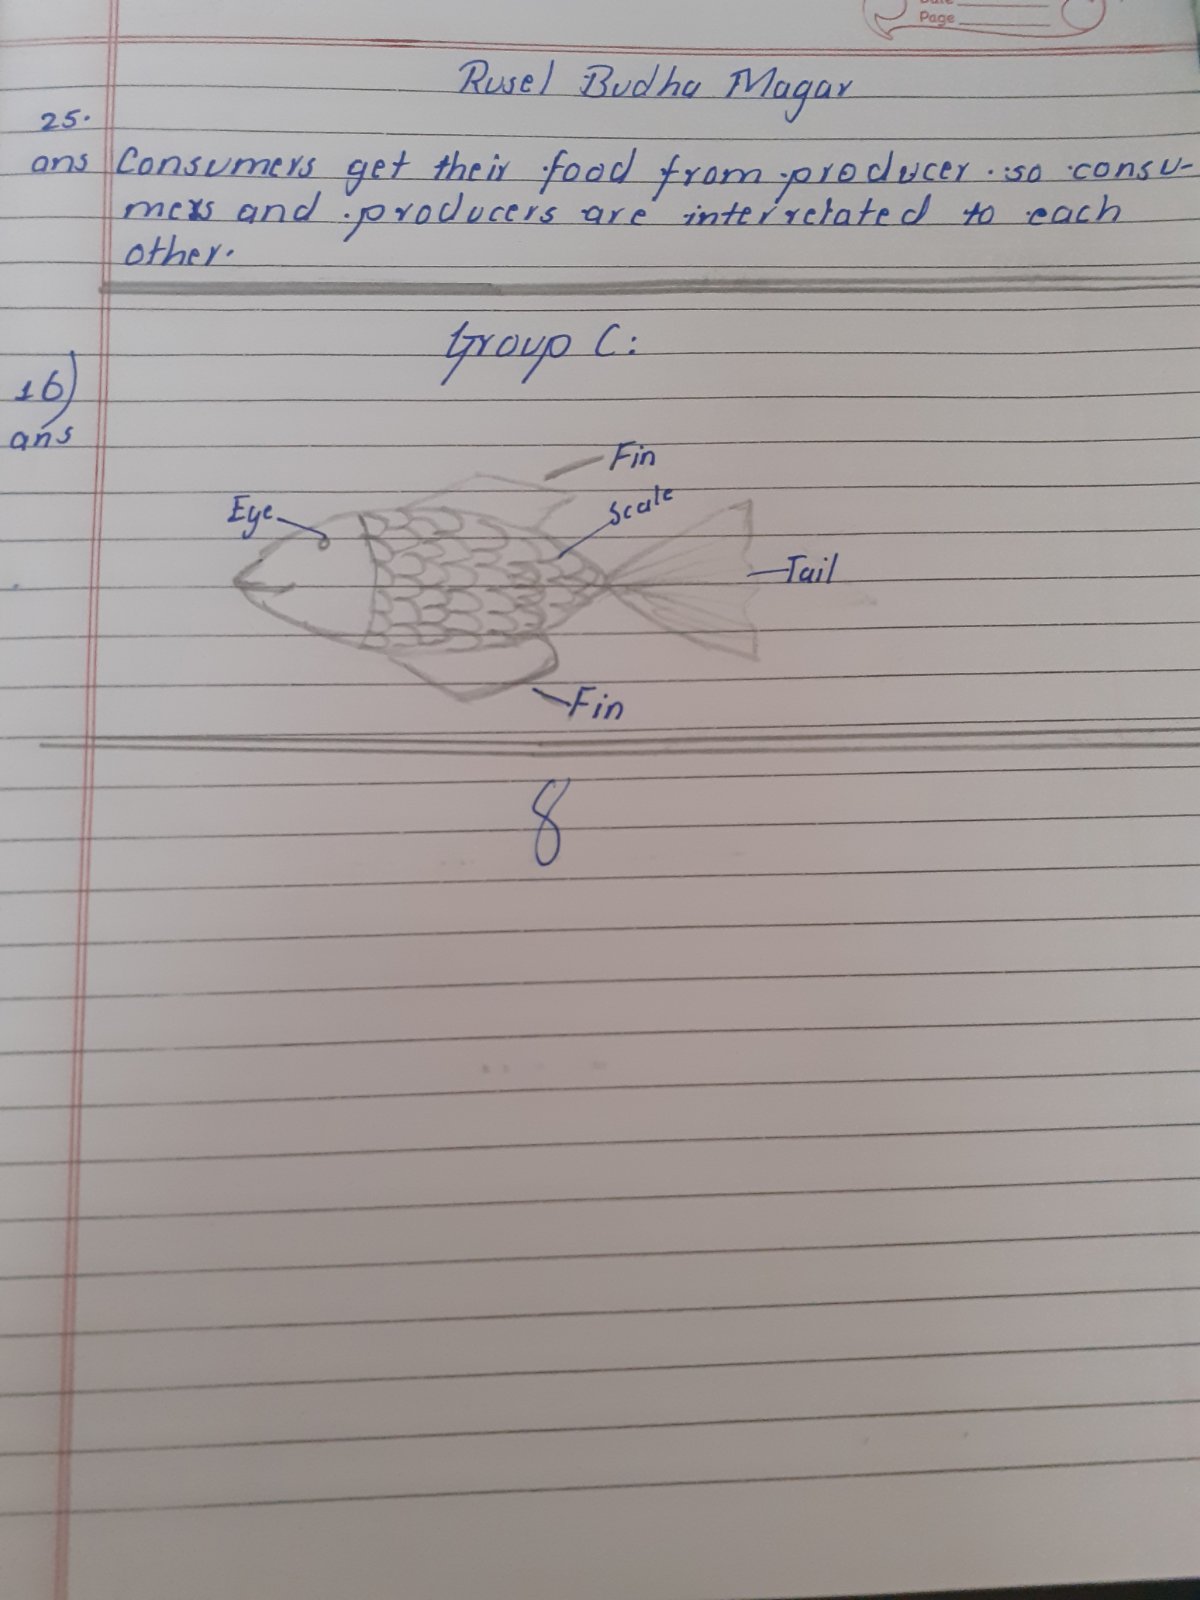 Page
Rusel Budha Magar
25.
ans Consumers get their food from producer. so consu-
mers and producers are interrelated to each
other.
Group C:
16)
ans
Fin
Eye
Scale
Tail
Fin
8